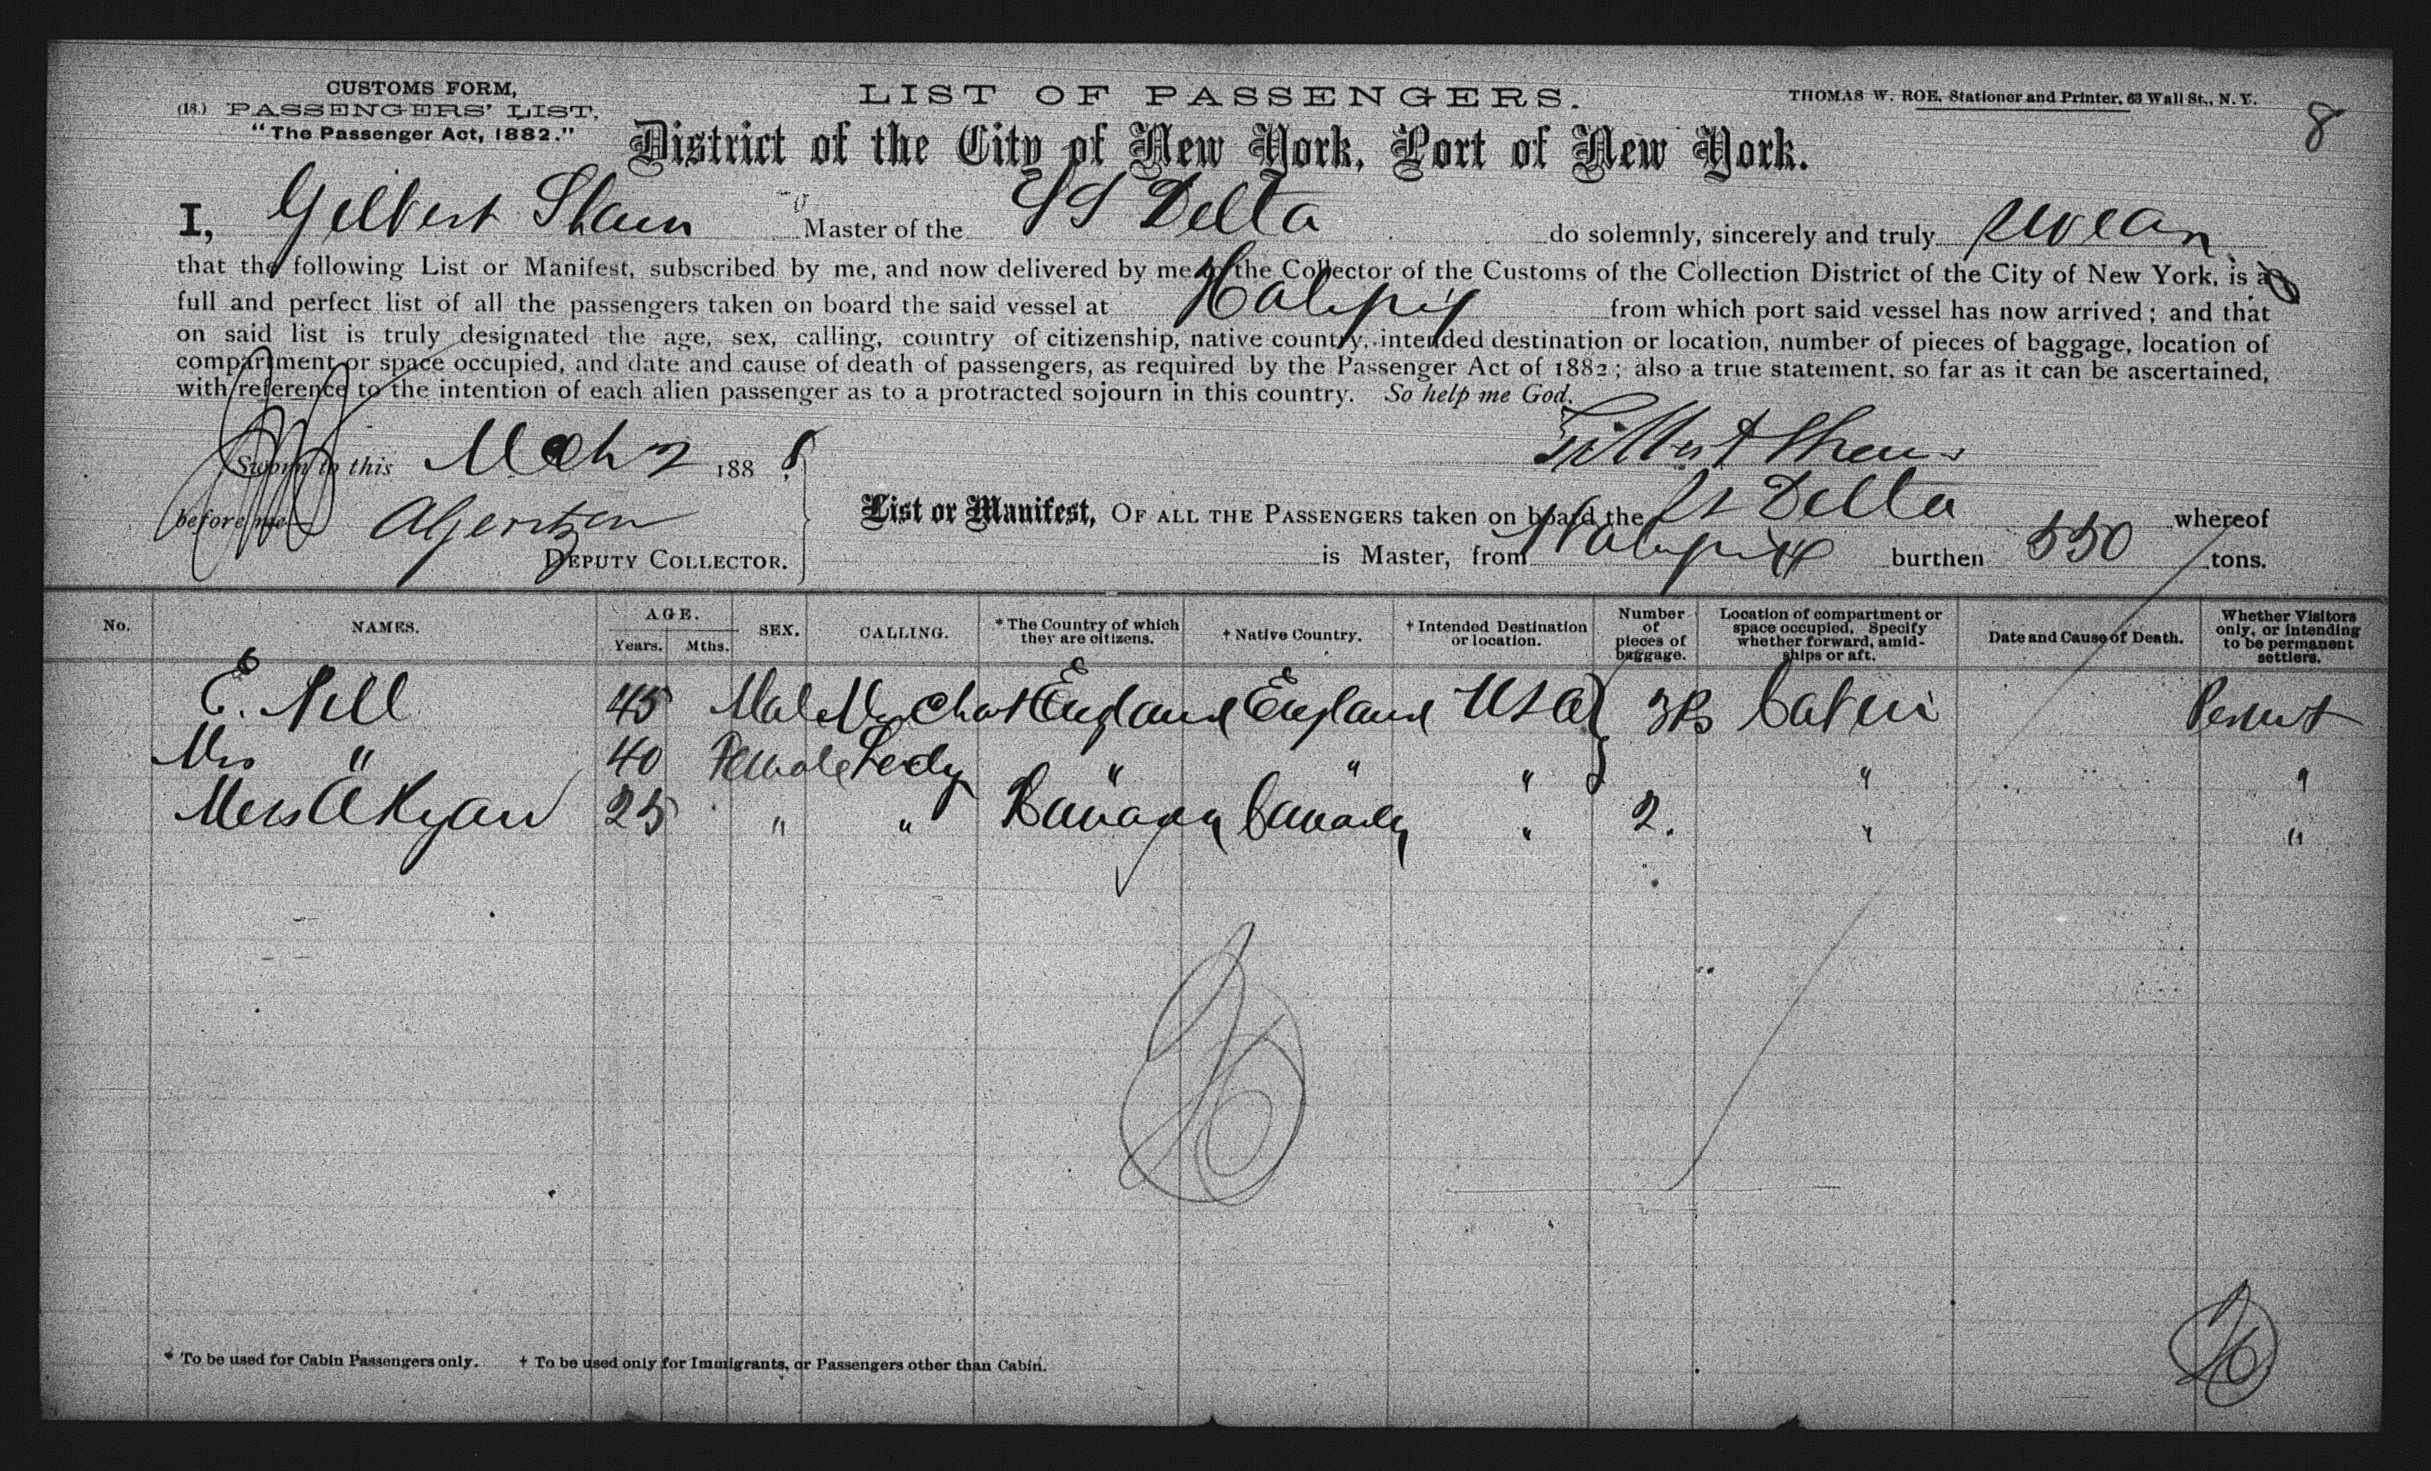 CUSTOMS FORM,
(18.) PASSENGERS' LIST.
"The Passenger Act, 1882."
LIST OF PASSENGERS.
THOMAS W. ROE, Stationer and Printer, 63 Wall St., N. Y.
8
District of the City of New York, Port of New York.
I, Gilbert Shaw Master of the SS Delta do solemnly, sincerely and truly swear
that the following List or Manifest, subscribed by me, and now delivered by me to the Collector of the Customs of the Collection District of the City of New York, is a
full and perfect list of all the passengers taken on board the said vessel at Halifax from which port said vessel has now arrived; and that
on said list is truly designated the age, sex, calling, country of citizenship, native country, intended destination or location, number of pieces of baggage, location of
compartment or space occupied, and date and cause of death of passengers, as required by the Passenger Act of 1882; also a true statement, so far as it can be ascertained,
with reference to the intention of each alien passenger as to a protracted sojourn in this country. So help me God.
Gilbert Shaw
Sworn to this Mch 2 1888.
before me
DEPUTY COLLECTOR.
List or Manifest, OF ALL THE PASSENGERS taken on board the SS Delta whereof
is Master, from Halifax burthen 550 tons.
No. NAMES. AGE. Years. Mths. SEX. CALLING. * The Country of which they are citizens. † Native Country. † Intended Destination or location. Number of pieces of baggage. Location of compartment or space occupied. Specify whether forward, amidships or aft. Date and Cause of Death. Whether Visitors only, or intending to be permanent settlers.
E. Nell 45 Male Merchat England England USA 3 Ps Cabin
Mrs " 40 Female Lady " " " " "
Miss A Ryan 25 " " Canada Canada " 2. " "
* To be used for Cabin Passengers only. † To be used only for Immigrants, or Passengers other than Cabin.